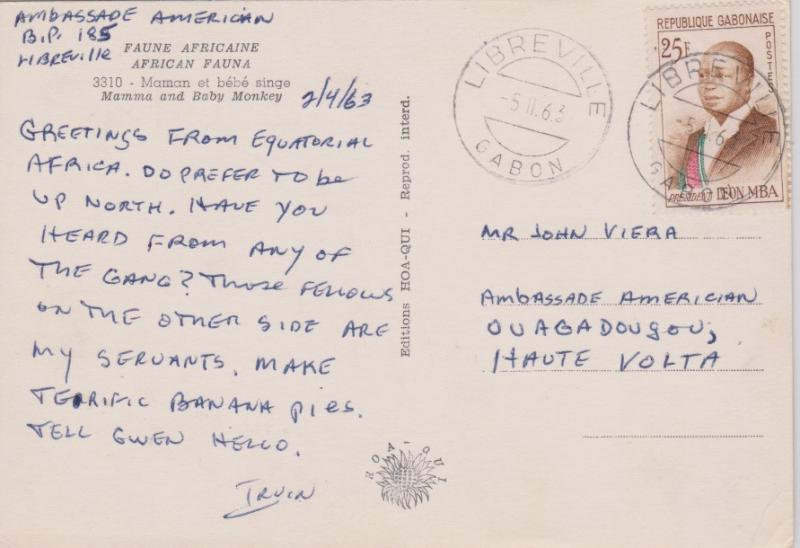 AMBASSADE AMERICIAN
B.P. 185
LIBREVILLE
FAUNE AFRICAINE
AFRICAN FAUNA
3310 - Maman et bébé singe
Mamma and Baby Monkey
2/4/63
GREETINGS FROM EQUATORIAL
AFRICA. DO PREFER TO be
UP NORTH. HAVE YOU
HEARD FROM ANY OF
THE GANG? THOSE FELLOWS
ON THE OTHER SIDE ARE
MY SERVANTS. MAKE
TERRIFIC BANANA PIES.
TELL GWEN HELLO.
IRVIN
Editions HOA-QUI - Reprod. interd.
HOA-QUI
LIBREVILLE
-5 II.63
GABON
REPUBLIQUE GABONAISE
25F
POSTES
PRESIDENT LEON MBA
LIBREVILLE
GABON
MR JOHN VIERA
AMBASSADE AMERICIAN
OUAGADOUGOU,
HAUTE VOLTA